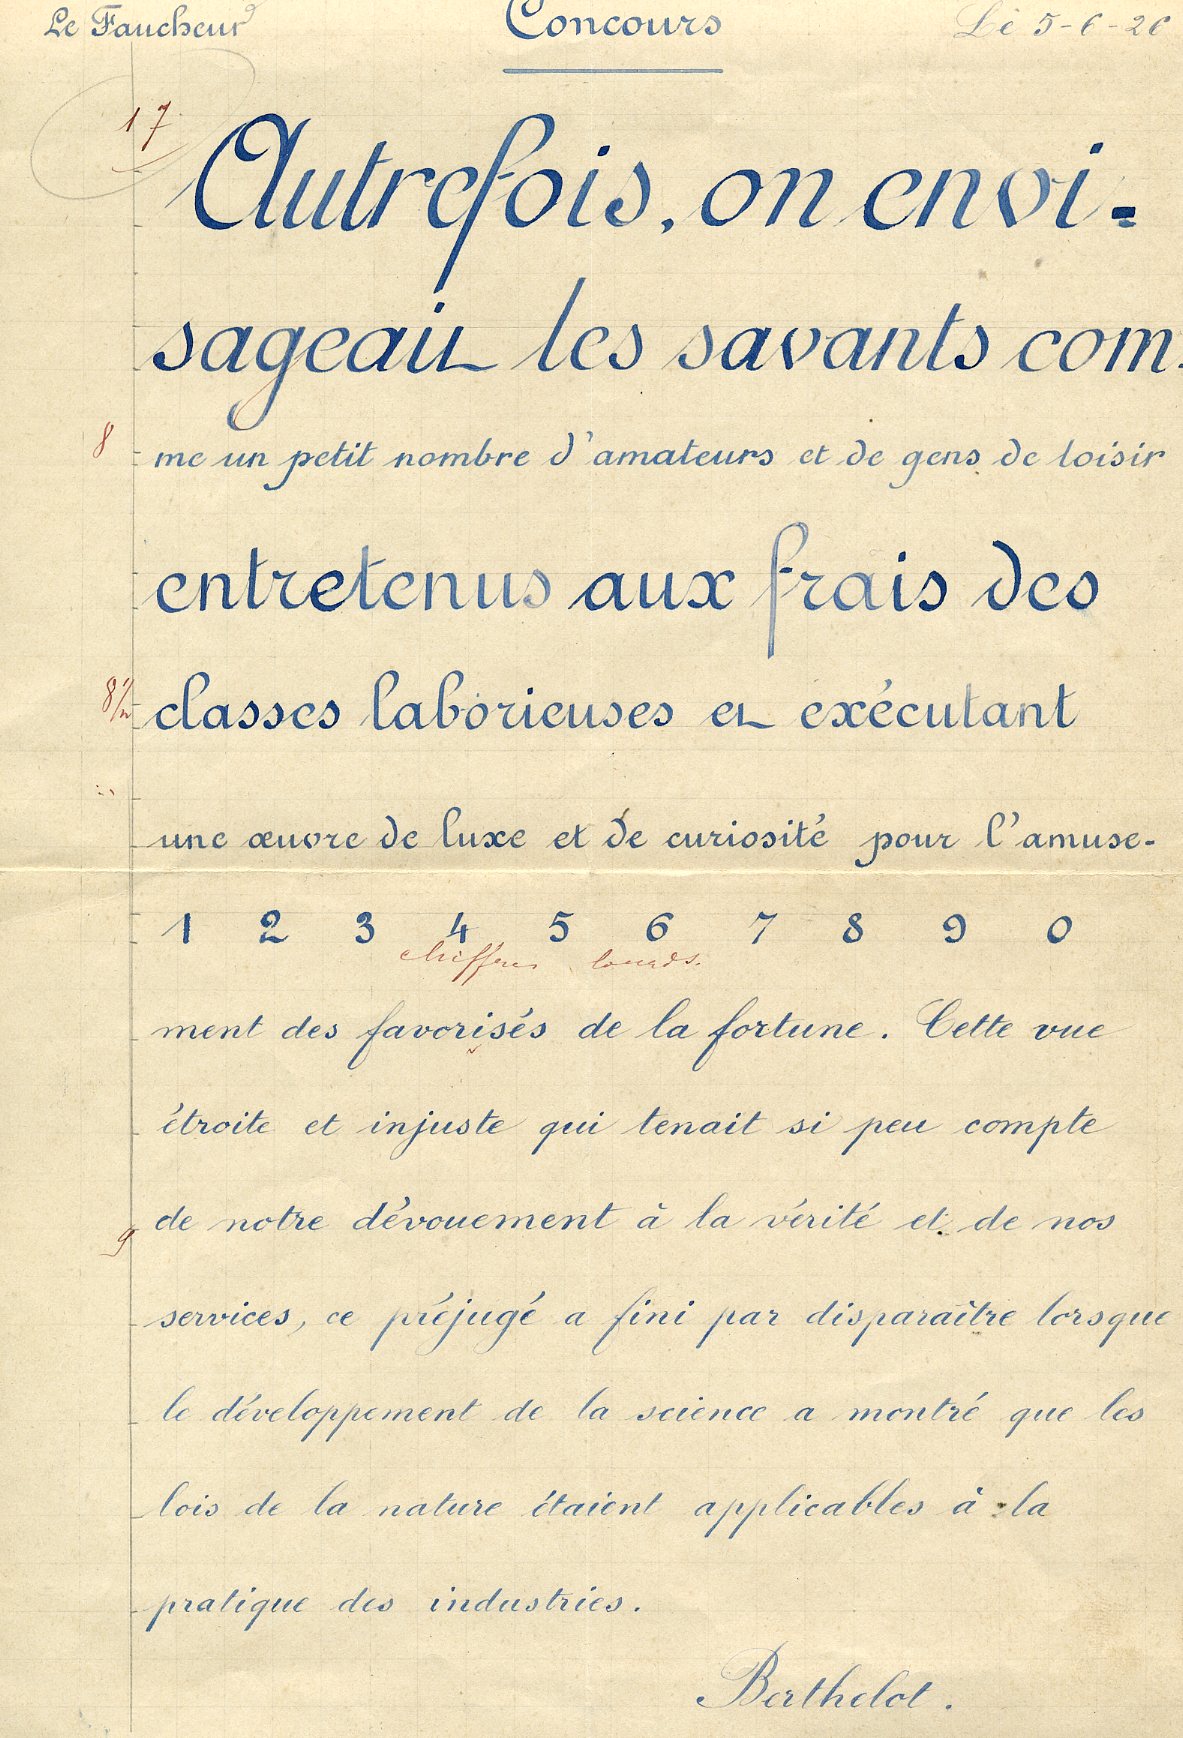 Le Faucheur
Concours
Le 5-6-26
17
Autrefois, on envi-
sageait les savants com-
8
me un petit nombre d'amateurs et de gens de loisir
entretenus aux frais des
8 1/2
classes laborieuses et exécutant
une œuvre de luxe et de curiosité pour l'amuse-
1 2 3 4 5 6 7 8 9 0
chiffres lourds.
ment des favorisés de la fortune. Cette vue
étroite et injuste qui tenait si peu compte
de notre dévouement à la vérité et de nos
9
services, ce préjugé a fini par disparaître lorsque
le développement de la science a montré que les
lois de la nature étaient applicables à la
pratique des industries.
Berthelot.